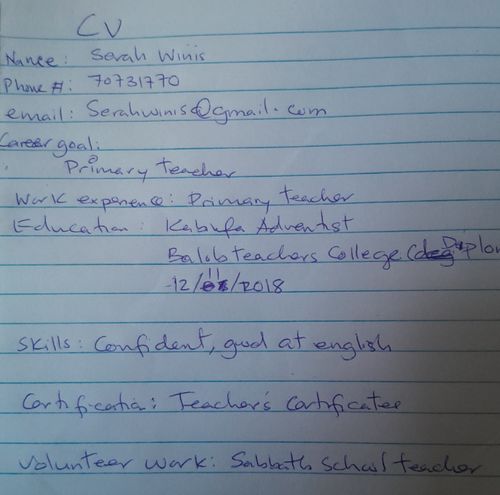 CV
Name: Serah Winis
Phone #: 70731770
email: Serahwinis@gmail.com
Career goal:
Primary teacher
Work experience: Primary teacher
Education: Kabufa Adventist
Balob teachers College (Diplom
-12/11/2018
Skills: Confident, good at english
Certification: Teacher's Certificates
Volunteer work: Sabbath School teacher